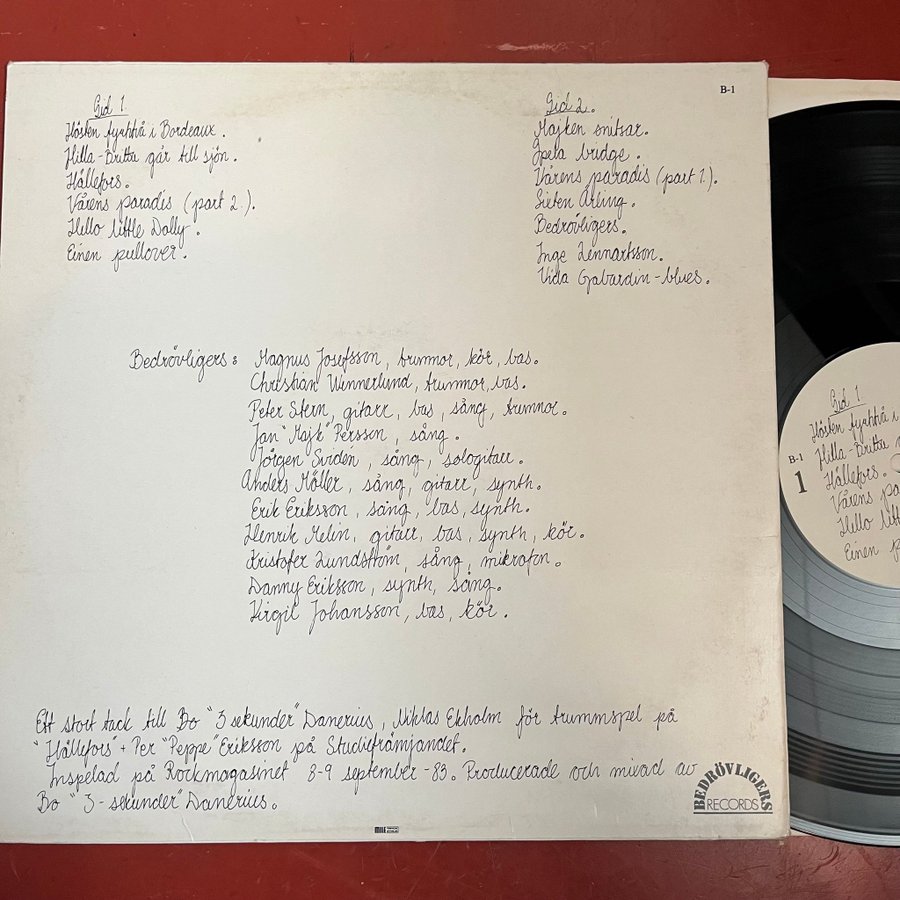 B-1
Sid 1.
Hösten fyrtitvå i Bordeaux.
Hilla-Britta går till sjön.
Hällefors.
Vårens paradis (part 2.).
Hello little Dolly.
Einen pullover.
Sid 2.
Majken snitsar.
Spela bridge.
Vårens paradis (part 1.).
Sixten Ärling.
Bedrövligers.
Inge Lennartsson.
Vida Gabardin-blues.
Bedrövligers: Magnus Josefsson, trummor, kör, bas.
Christian Wennerlund, trummor, bas.
Peter Stern, gitarr, bas, sång, trummor.
Jan "Majk" Persson, sång.
Jörgen Svidén, sång, sologitarr.
Anders Möller, sång, gitarr, synth.
Erik Eriksson, sång, bas, synth.
Henrik Melin, gitarr, bas, synth, kör.
Kristofer Lundström, sång, mikrofon.
Danny Eriksson, synth, sång.
Virgil Johansson, bas, kör.
Ett stort tack till Bo "3 sekunder" Danerius, Niklas Ekholm för trummspel på
"Hällefors" + Per "Peppe" Eriksson på Studiefrämjandet.
Inspelad på Rockmagasinet 8-9 september -83. Producerade och mixad av
Bo "3-sekunder" Danerius.
BEDRÖVLIGERS
RECORDS
Sid 1.
Hösten fyrtitvå i
B-1
1
Hilla-Britta
Hällefors.
Vårens pa
Hello litt
Einen p